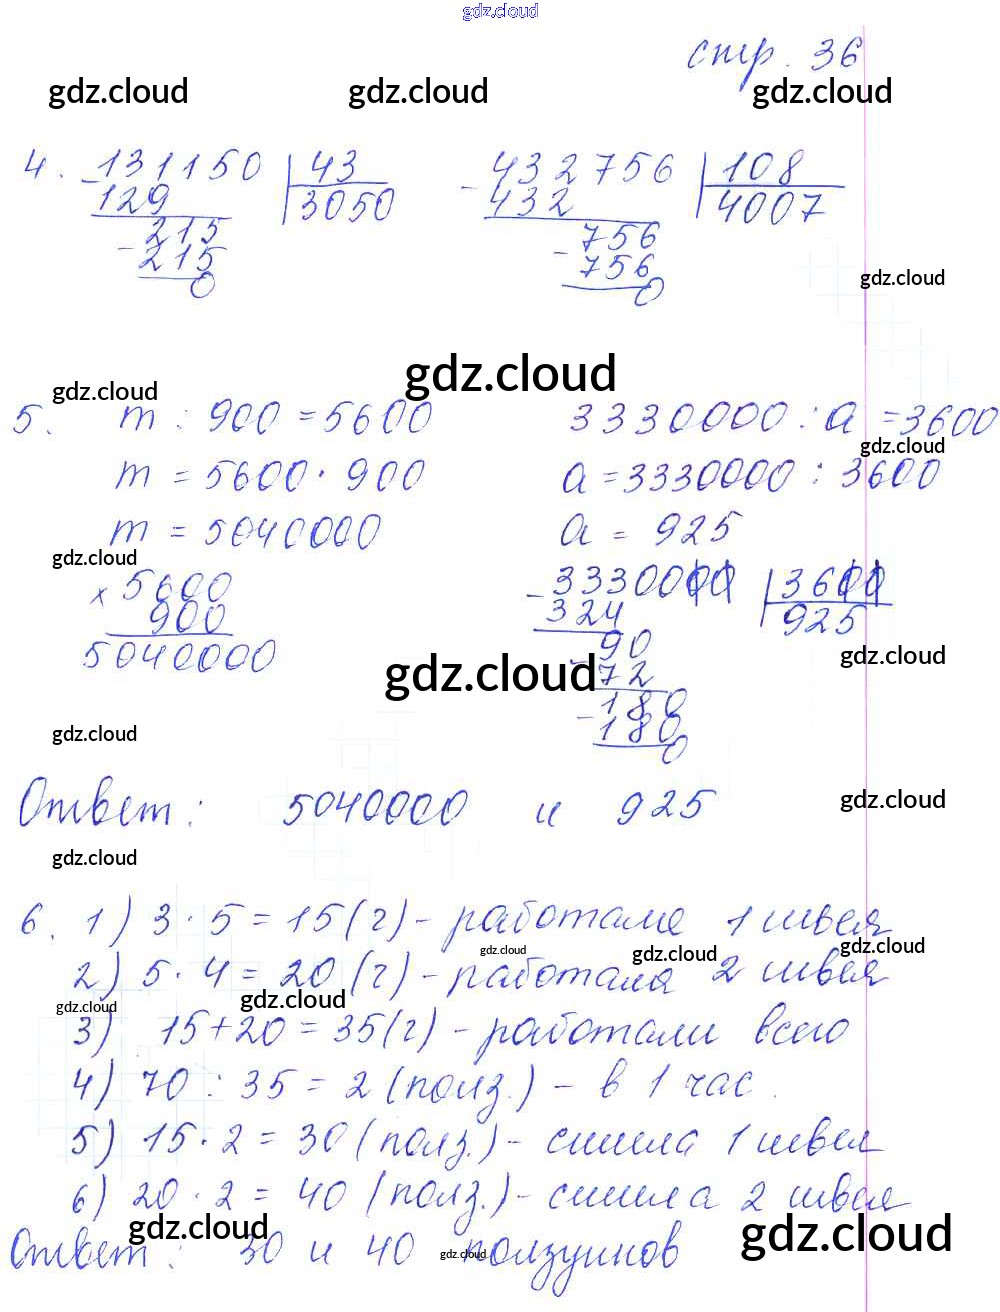 gdz.cloud
стр. 36
gdz.cloud gdz.cloud gdz.cloud
4. 131150 | 43 432756 | 108
- 129 3050 - 432 4007
215 756
- 215 - 756
0 0
gdz.cloud
gdz.cloud
gdz.cloud
5. m : 900 = 5600 3330000 : a = 3600
gdz.cloud
m = 5600 · 900 a = 3330000 : 3600
m = 5040000 a = 925
gdz.cloud
× 5600 - 3330000 | 3600
900 324 925
5040000 90
gdz.cloud
gdz.cloud
- 72
180
- 180
gdz.cloud
0
Ответ: 5040000 и 925
gdz.cloud
gdz.cloud
6. 1) 3 · 5 = 15 (г) - работала 1 швея
gdz.cloud gdz.cloud gdz.cloud
2) 5 · 4 = 20 (г) - работала 2 швея
gdz.cloud gdz.cloud
3) 15 + 20 = 35 (г) - работали всего
4) 70 : 35 = 2 (полз.) - в 1 час.
5) 15 · 2 = 30 (полз.) - сшила 1 швея
6) 20 · 2 = 40 (полз.) - сшила 2 швея
gdz.cloud gdz.cloud
Ответ: 30 и 40 ползунков
gdz.cloud